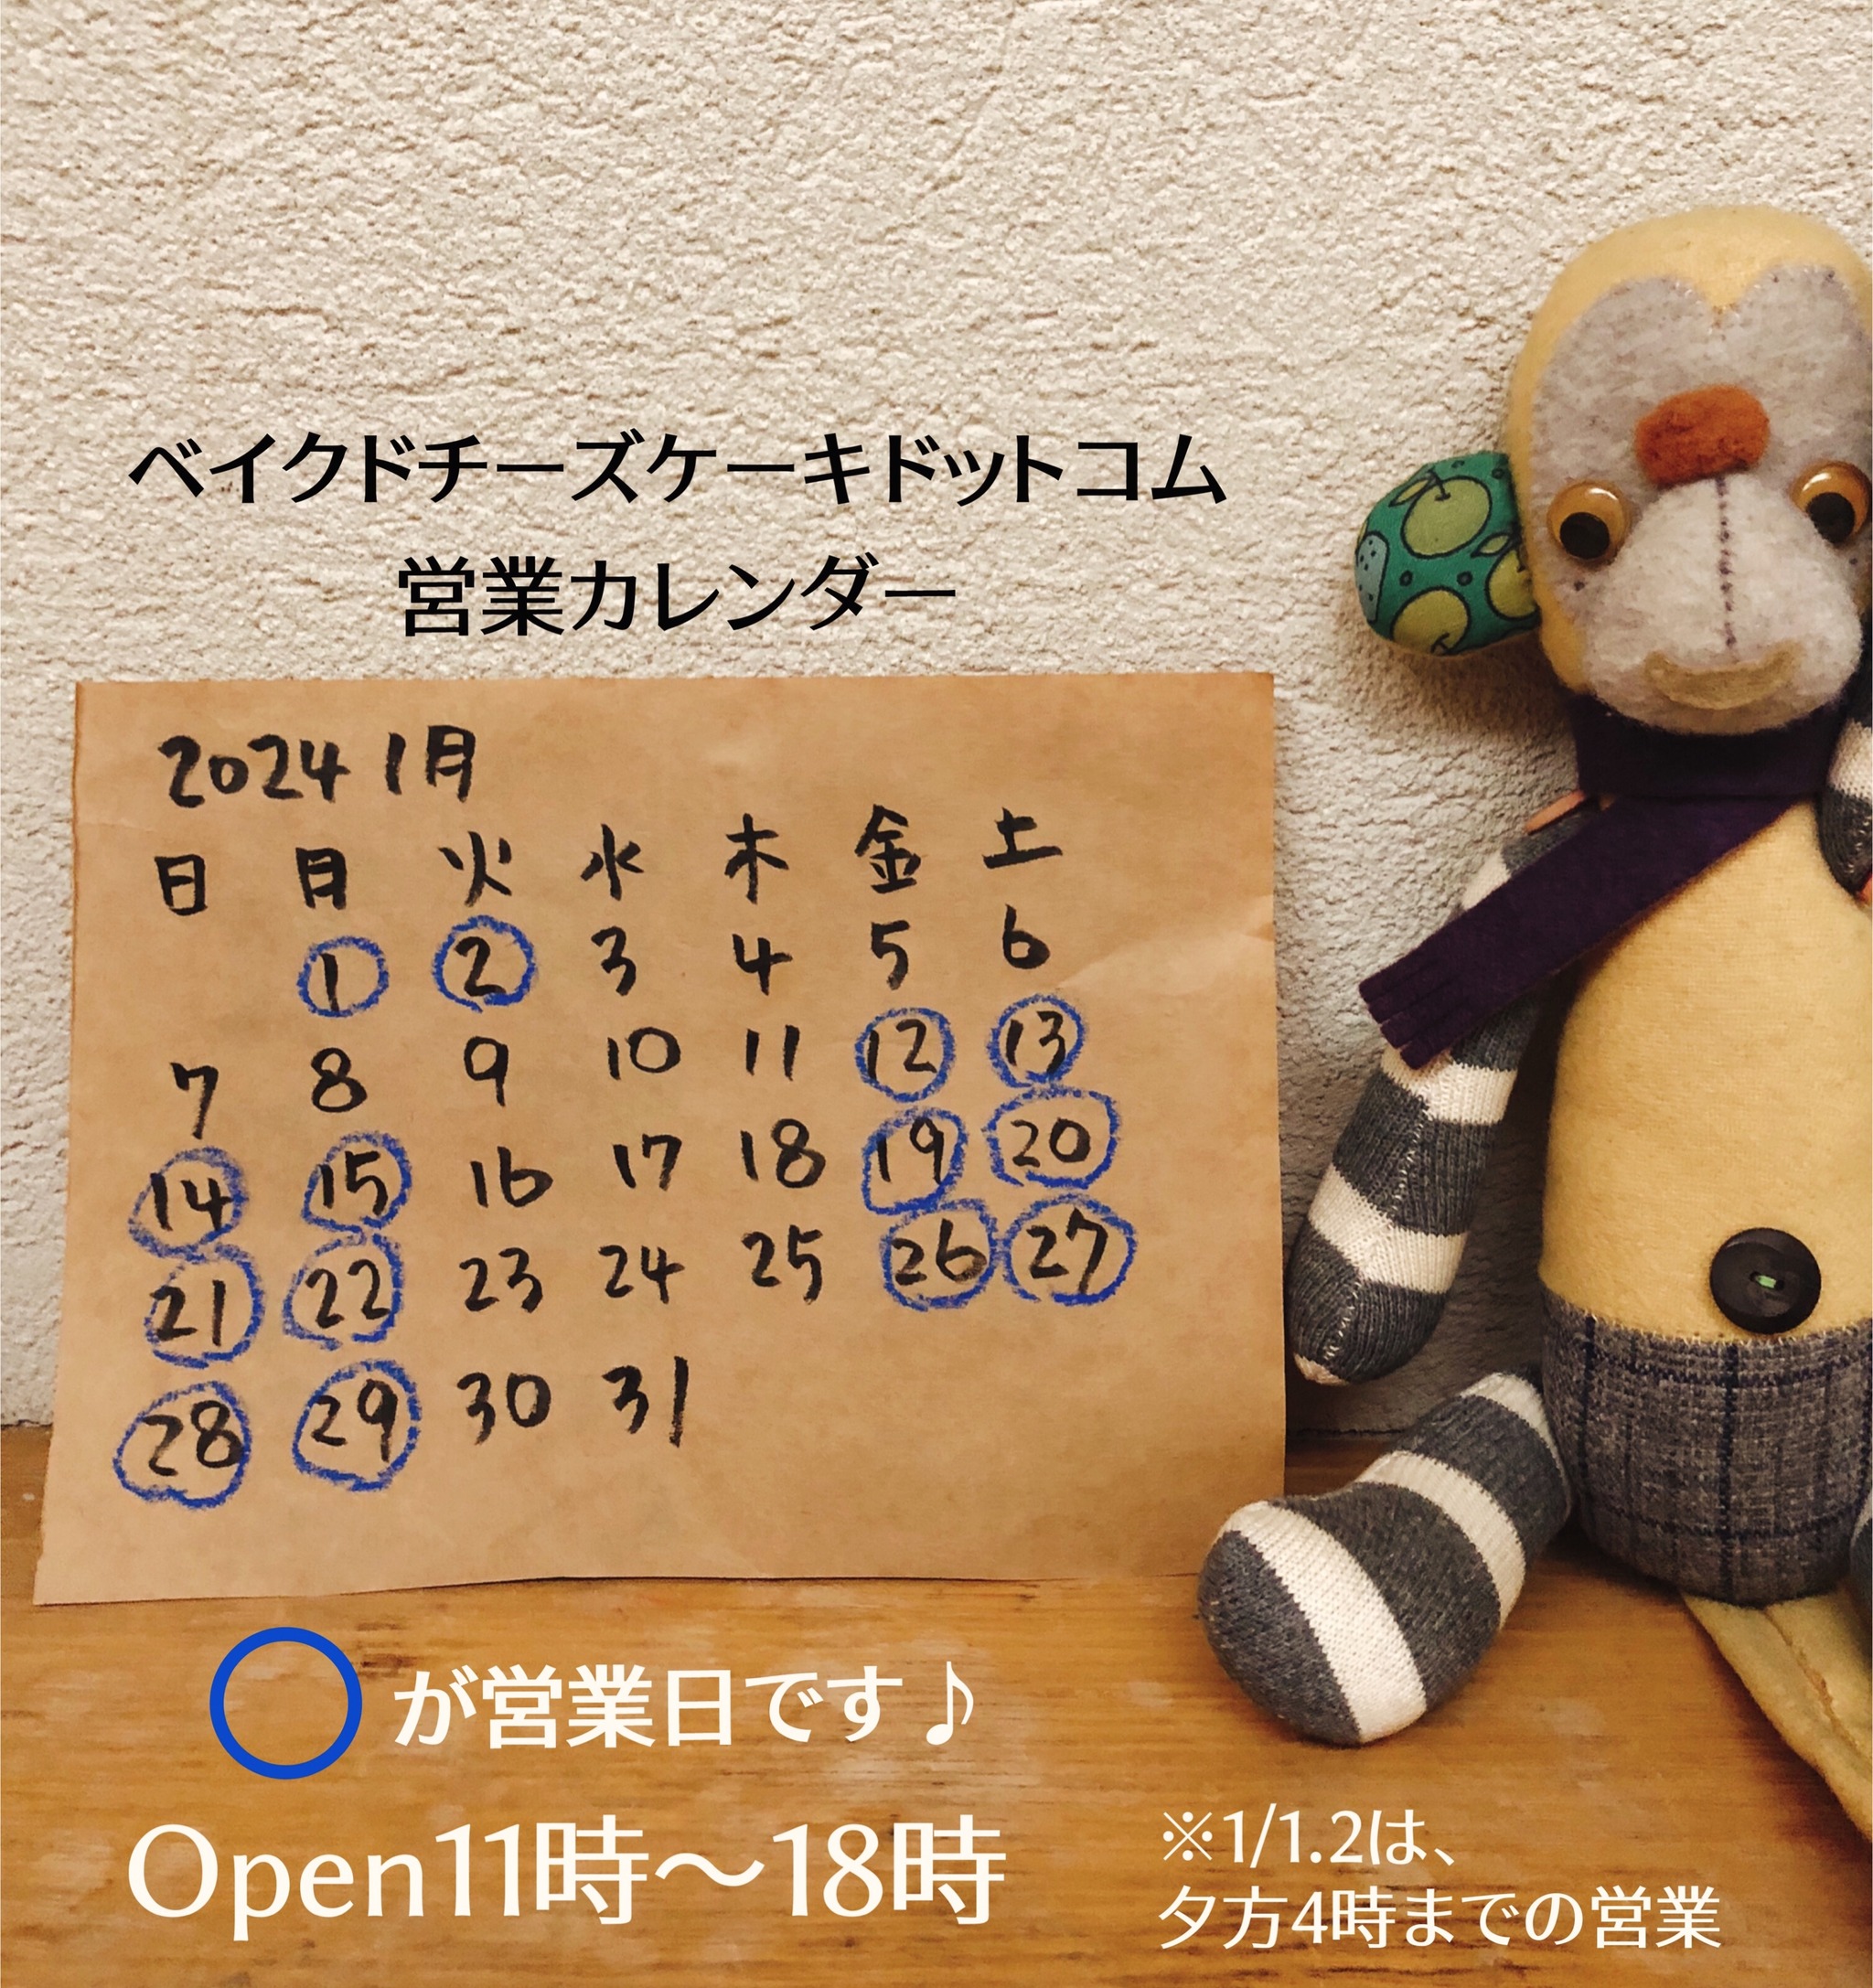 ベイクドチーズケーキドットコム
営業カレンダー
2024 1月
日 月 火 水 木 金 土
1 2 3 4 5 6
7 8 9 10 11 12 13
14 15 16 17 18 19 20
21 22 23 24 25 26 27
28 29 30 31
◯が営業日です♪
Open11時〜18時
※1/1.2は、
夕方4時までの営業